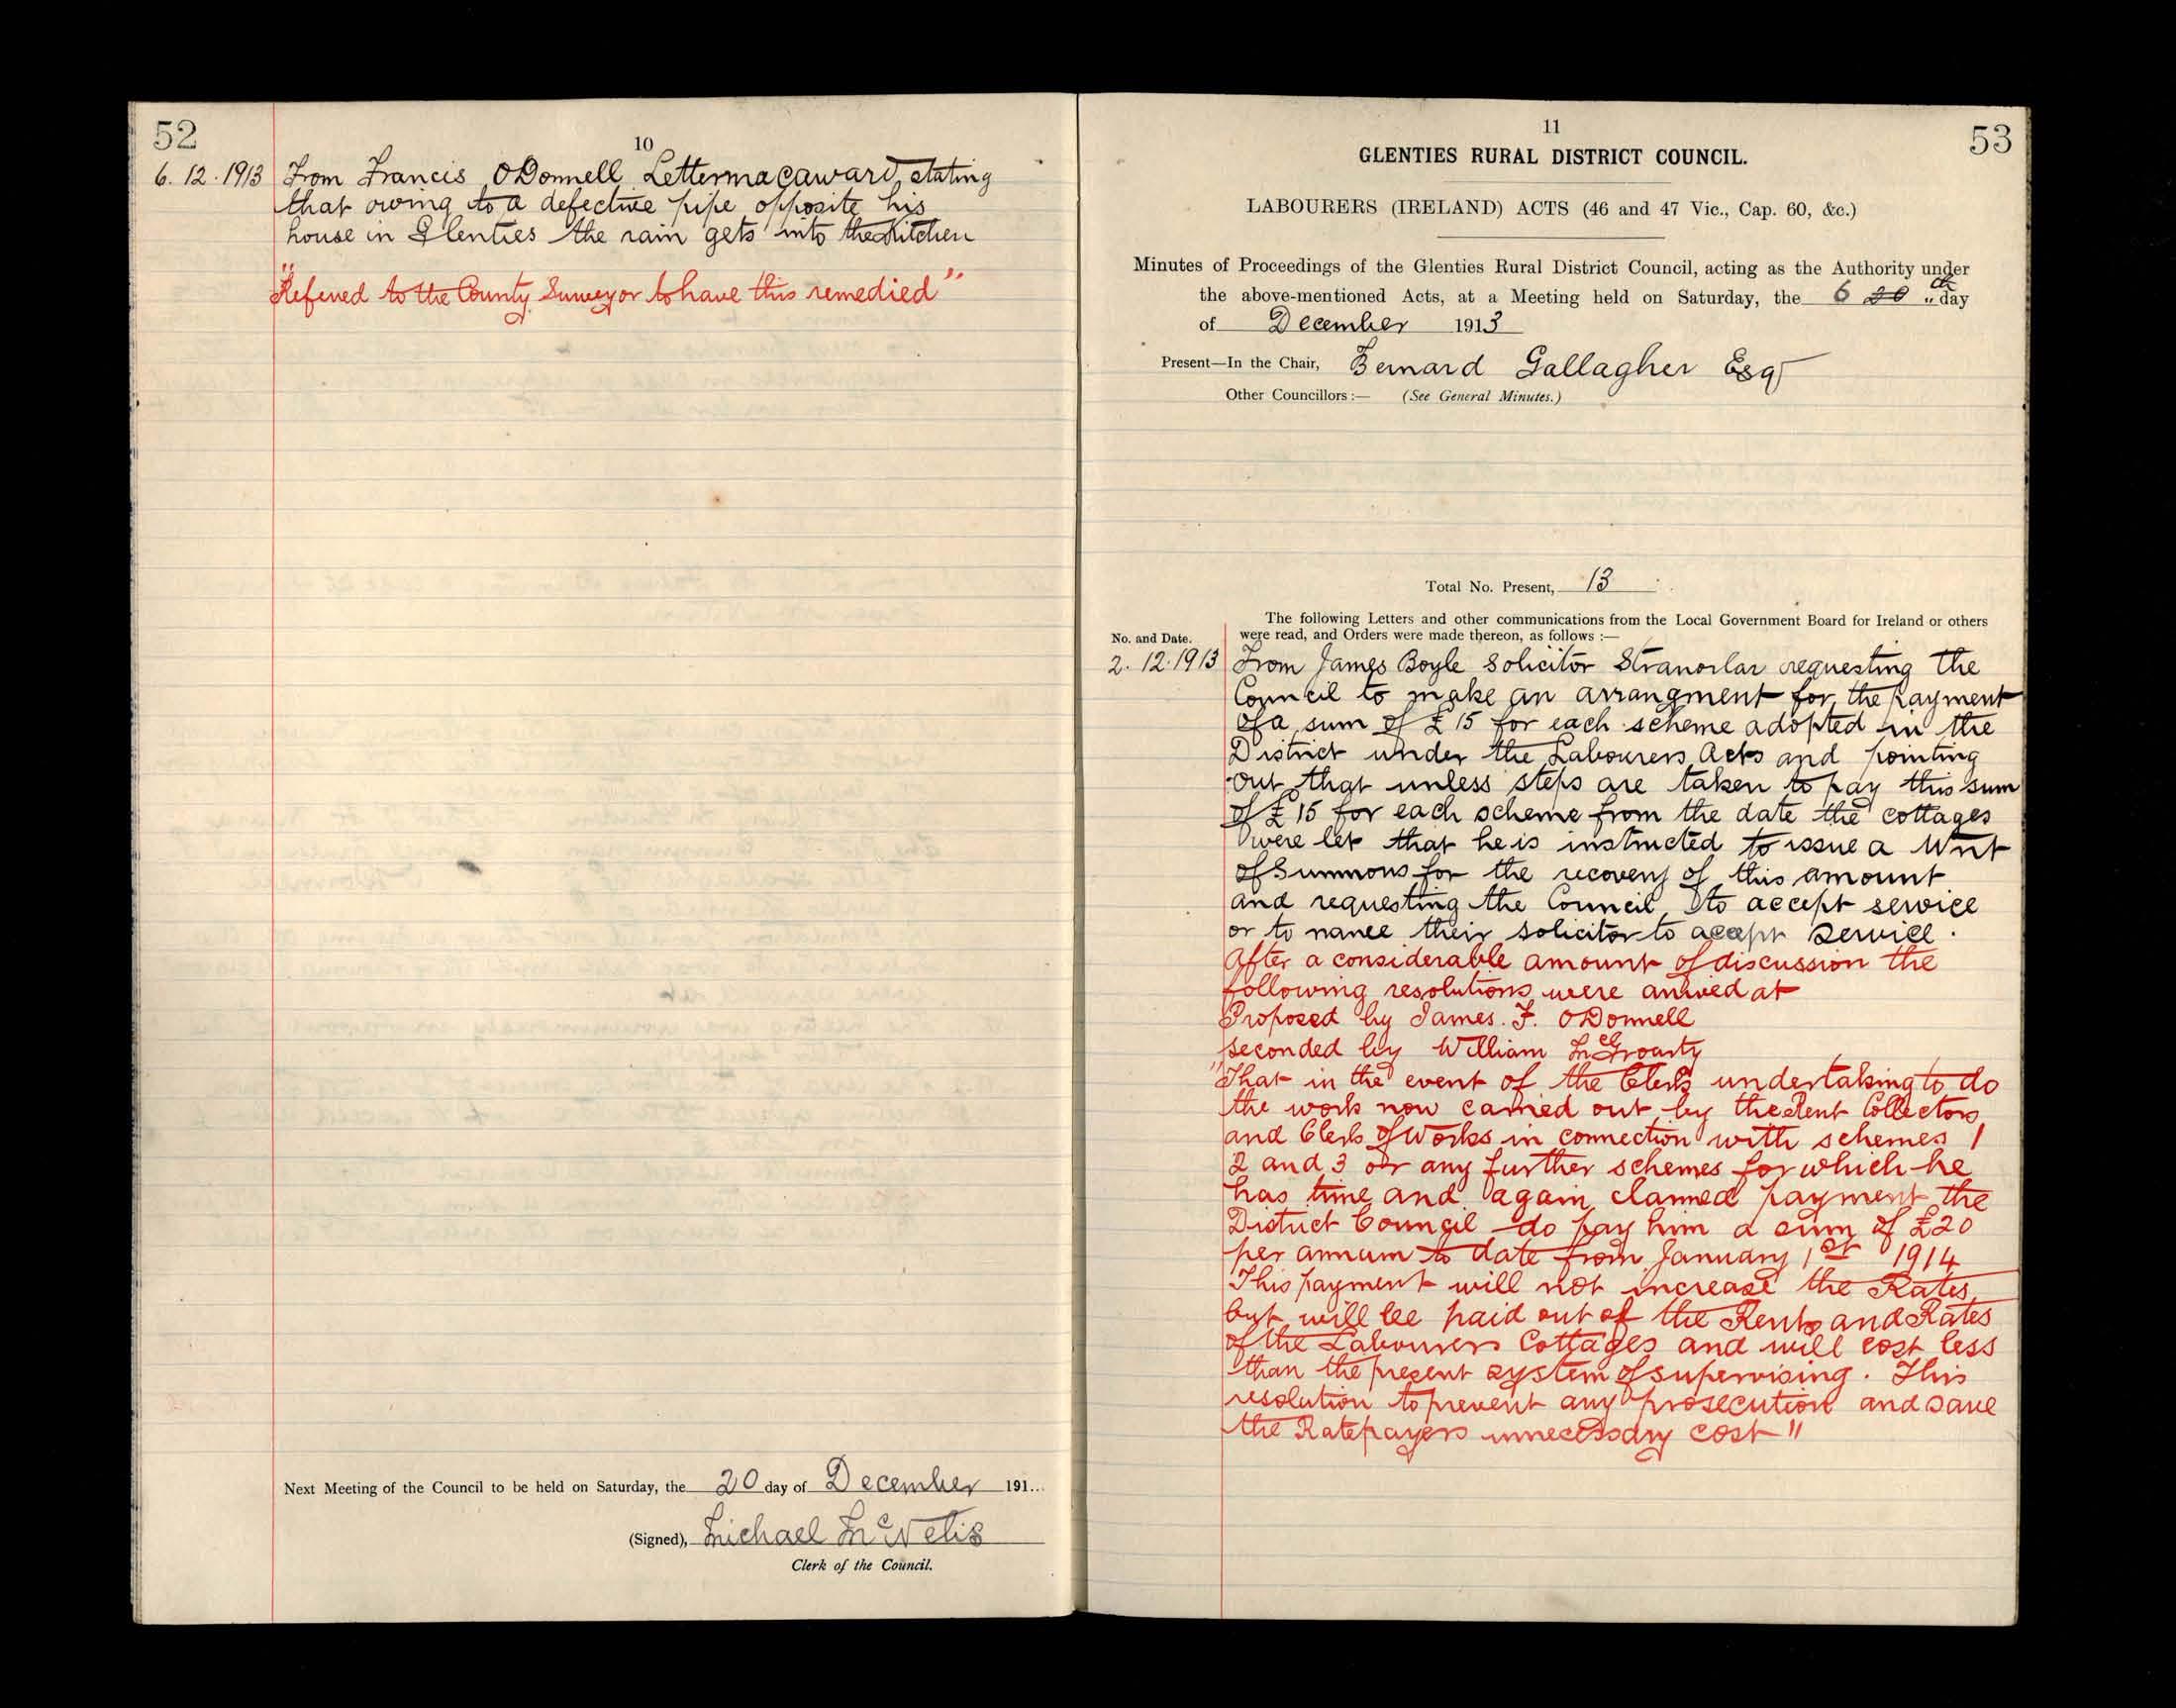 52
10
6. 12. 1913 From Francis ODonnell Lettermacaward, stating
that owing to a defective pipe opposite his
house in Glenties the rain gets into the Kitchen
"Refered to the County Surveyor to have this remedied"
Next Meeting of the Council to be held on Saturday, the 20 day of December 191...
(Signed), Michael McNelis
Clerk of the Council.
11
53
GLENTIES RURAL DISTRICT COUNCIL.
LABOURERS (IRELAND) ACTS (46 and 47 Vic., Cap. 60, &c.)
Minutes of Proceedings of the Glenties Rural District Council, acting as the Authority under
the above-mentioned Acts, at a Meeting held on Saturday, the 6 20 th day
of December 1913
Present—In the Chair, Bernard Gallagher Esq
Other Councillors :— (See General Minutes.)
Total No. Present, 13
The following Letters and other communications from the Local Government Board for Ireland or others
No. and Date. were read, and Orders were made thereon, as follows :—
2. 12. 1913 From James Boyle Solicitor Stranorlar requesting the
Council to make an arrangment for the payment
of a sum of £15 for each scheme adopted in the
District under the Labourers Acts and pointing
out that unless steps are taken to pay this sum
of £15 for each scheme from the date the cottages
were let that he is instructed to issue a Writ
of Summons for the recovery of this amount
and requesting the Council to accept service
or to name their solicitor to accept service.
After a considerable amount of discussion the
following resolutions were arrived at
Proposed by James. F. ODonnell
seconded by William McGroarty
"That in the event of the Clerk undertaking to do
the work now carried out by the Rent Collectors
and Clerk of Works in connection with schemes 1
2 and 3 or any further schemes for which he
has time and again claimed payment the
District Council do pay him a sum of £20
per annum to date from January 1st 1914
This payment will not increase the Rates
but will be paid out of the Rents and Rates
of the Labourers Cottages and will cost less
than the present system of supervising. This
resolution to prevent any prosecution and save
the Ratepayers unnecessary cost"